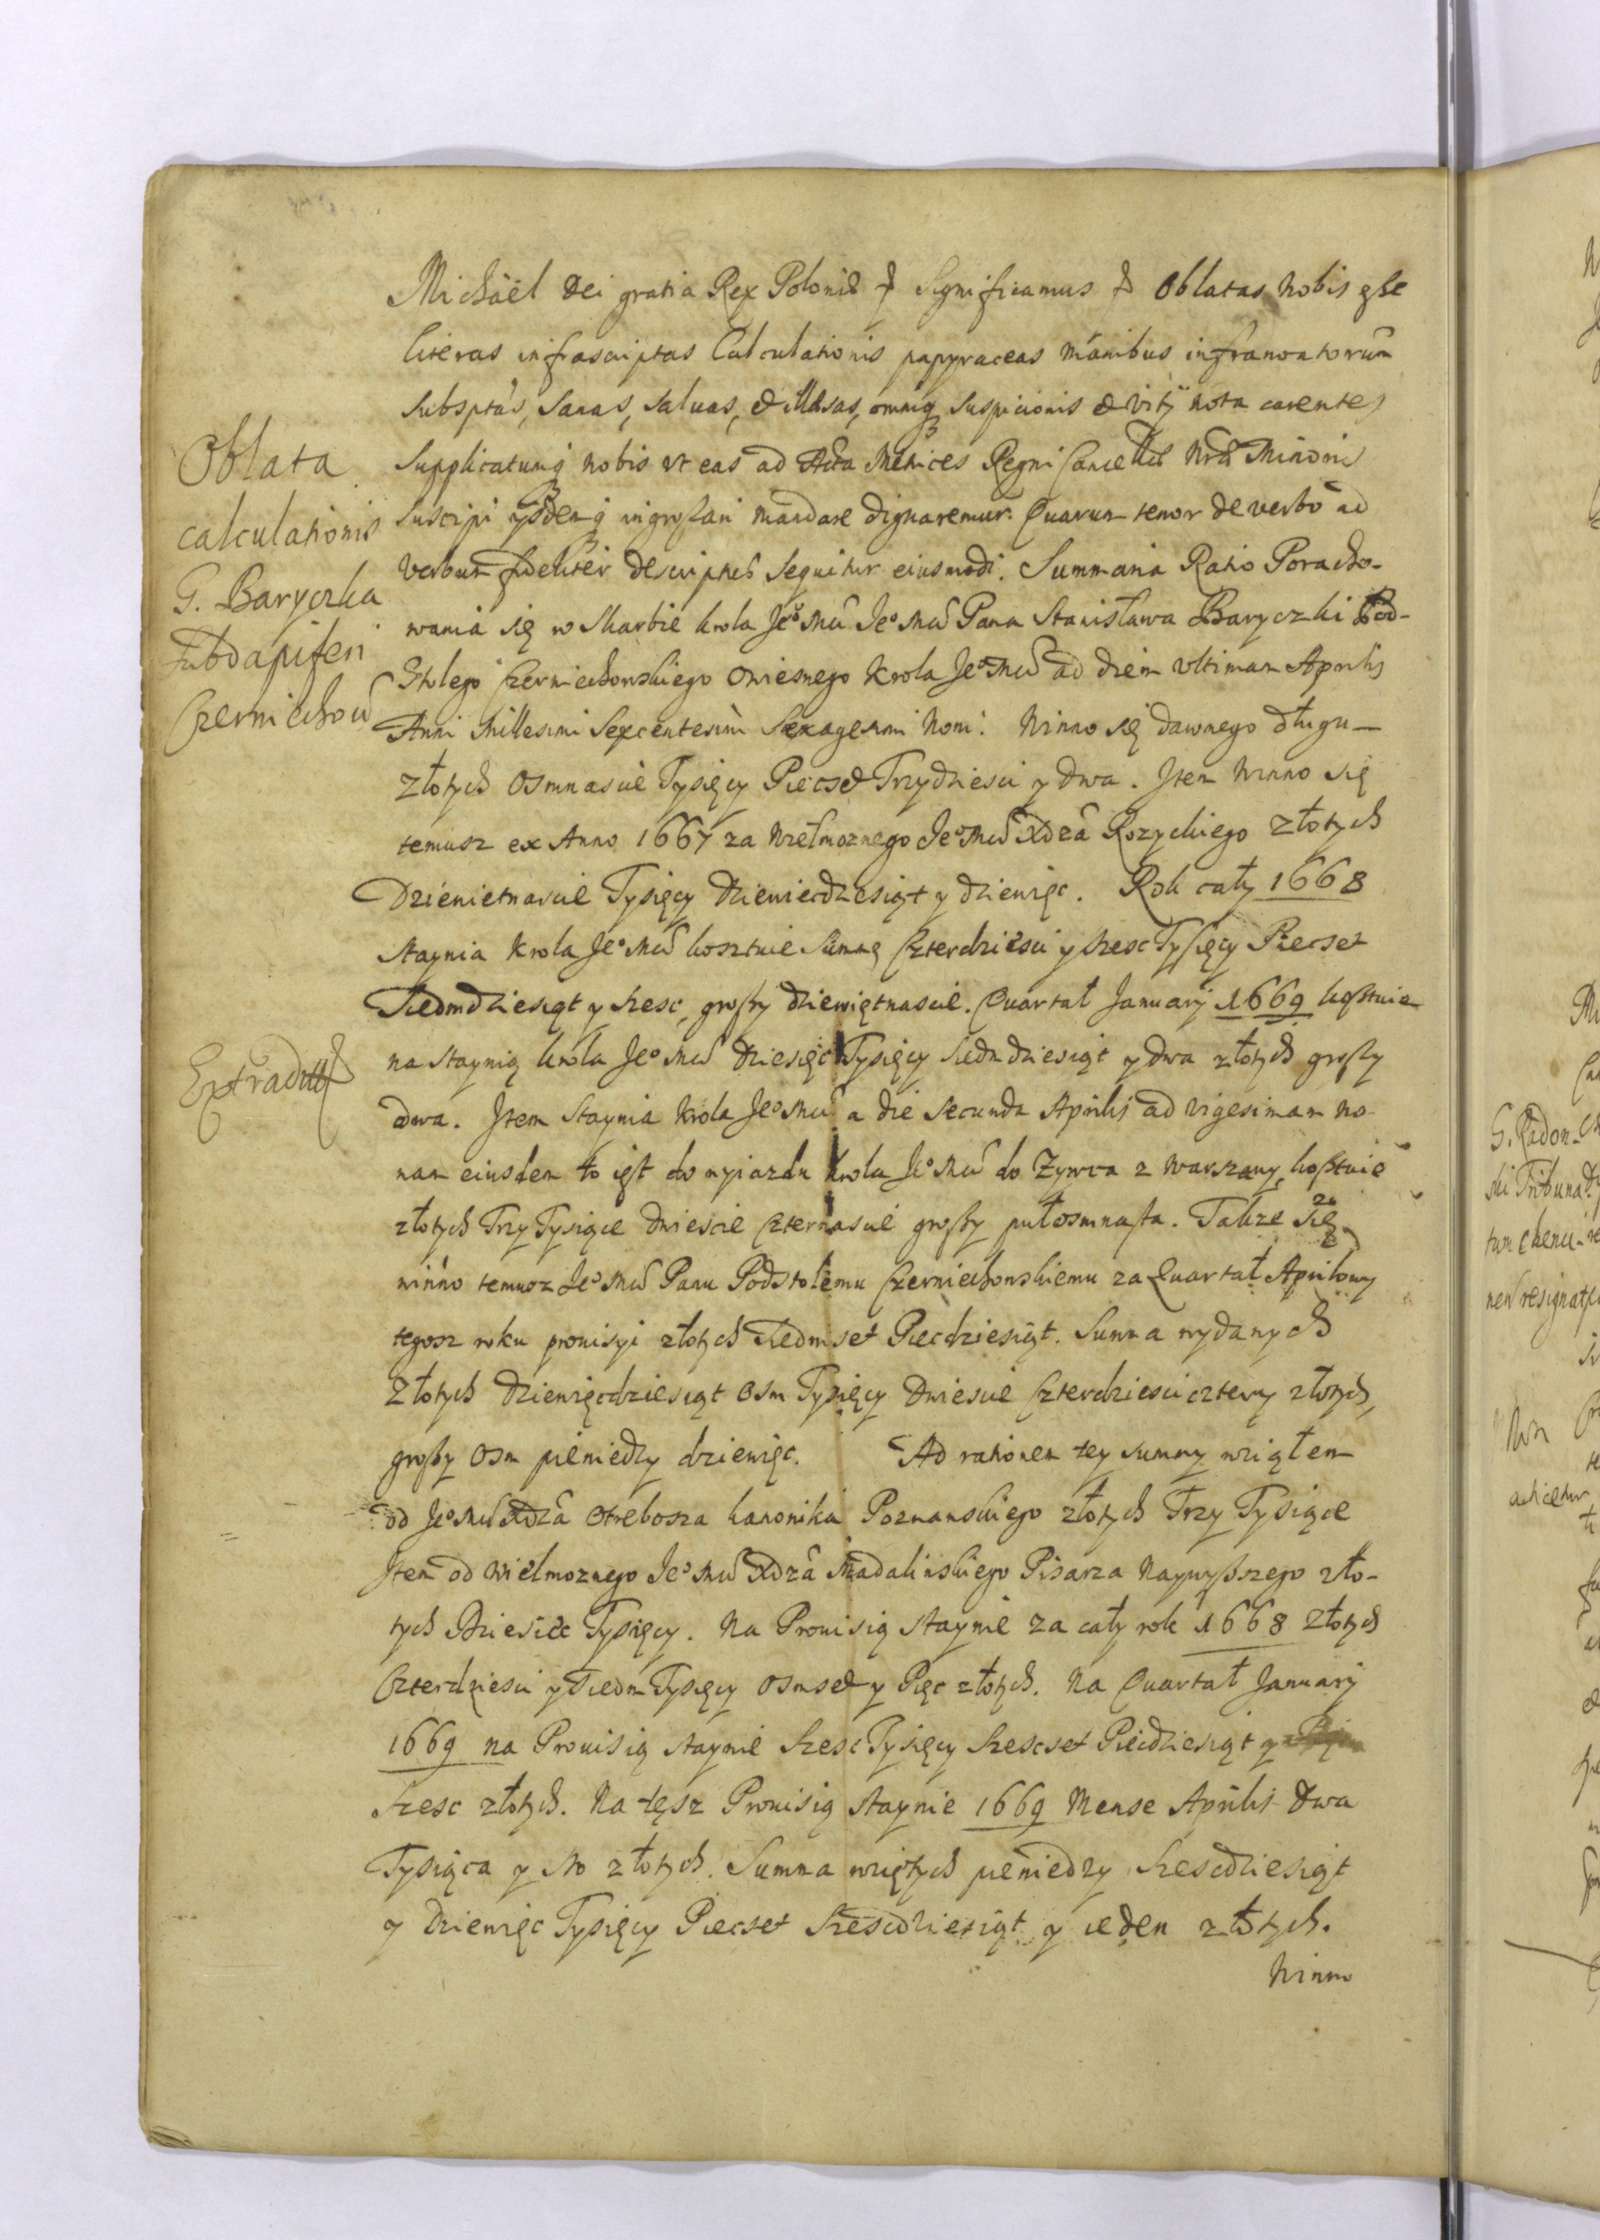 Michaël Dei gratia Rex Poloniæ & Significamus & Oblatas Nobis esse
literas infrascriptas Calculationis papyraceas Manibus infranotatorum
Subsptas, Sanas, Saluas, & illæsas, omniq Suspicionis & Vitij nota carentes
Supplicatumq Nobis Vt eas ad Acta Metrices Regni Cancellæ Nræ Minoris
Suscipi ijsdemq ingrossari Mandare dignaremur. Quarum tenor de verbo ad
Verbum fideliter descriptus Sequitur eiusmodi. Summaria Ratio Poracho-
wania się w Skarbie krola Jeº Mci Jeº Mci Pana Stanisława Baryczki Pod-
Stolego Czerniechowskiego Owiesnego Krola Jeº Mci ad diem Vltimam Aprilis
Anni Millesimi Sexcentesimi Sexagesimi Noni. Winno się dawnego długu
Złotych Osmnascie Tysięcy Piecset Trzydziesci y dwa. Item Winno się
temusz ex Anno 1667 za Wielmoznego Jeº Mci Xdza Rozyckiego Złotych
Dziewietnascie Tysięcy Dziewiecdziesiąt y dziewięc. Rok cały 1668
Staynia Krola Jeº Mci kosztuie Summę Czterdziesci y szesc Tysięcy Piecset
Siedmdziesiąt y szesc, groszy dziewiętnascie. Quartał January 1669 kosztuie
na Staynią krola Jeº Mci Dziesięc Tysięcy Siedmdziesiąt y dwa złotych groszy
dwa. Item Staynia Krola Jeº Mci a die Secunda Aprilis ad Vigesimam No-
nam eiusdem to iest do wyiazdu Krola Jeº Mci do Zywca z Warszawy, kosztuie
złotych Trzy Tysiące Dwiescie Czternascie groszy pułosmnasta. Takze się
winno temusz Jeº Mci Panu Podstolemu Czerniechowskiemu za Quartał Aprilowy
tegosz roku prouisyi złotych Siedmset Piecdziesiąt. Summa wydanych
Złotych Dziewięcdziesiąt Osm Tysięcy Dwiescie Czterdziesci cztery złotych,
groszy Osm pieniedzy dziewięc. Ad rationem tey Summy wziąłem
od Jeº Mci Xdza Otrebosza kanonika Poznanskiego złotych Trzy Tysiące
Item od Wielmoznego Jeº Mci Xdza Madalinskiego Pisarza Naywyszszego zło-
tych Dziesiec Tysięcy. Na Prouisią Staynie za cały rok 1668 Złotych
Czterdziesci y Siedm Tysięcy Osmset y Pięc złotych. Na Quartał January
1669 na Prouisią Staynie Szesc Tysięcy Szescset Piecdziesiąt y
Szesc złotych. Na tęsz Prouisią Staynie 1669 Mense Aprilis Dwa
Tysiąca y sto złotych. Summa wziętych pieniedzy Szescdziesiąt
y Dziewięc Tysięcy Piecset Szescdziesiąt y ieden złotych.
Winno
Oblata
calculationis
G. Baryczka
Subdapiferi
Czerniechow
Extradit
G. Radon-
ski Tribuna